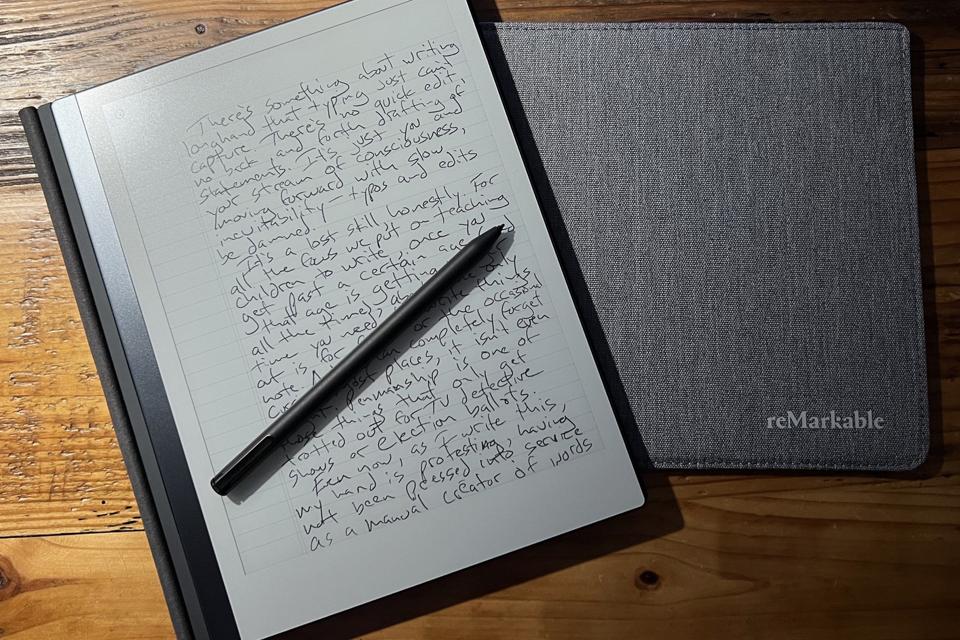 There's something about writing
longhand that typing just can't
capture. There's no quick edit,
no back and forth drafting of
statements. It's just you and
your stream of consciousness,
moving forward with slow
inevitability — typos and edits
be damned.
It's a lost still honestly. For
all the focus we put on teaching
children to write, once you
get past a certain age
that age is getting
all the time), only
time you need write things
at is for or the occasional
note. A can completely forget
most places, it isn't even
Penmanship is one of
those things that only get
trotted out for TV detective
shows or election ballots.
Even now, as I write this,
my hand is protesting, having
not been pressed into service
as a manual creator of words
reMarkable